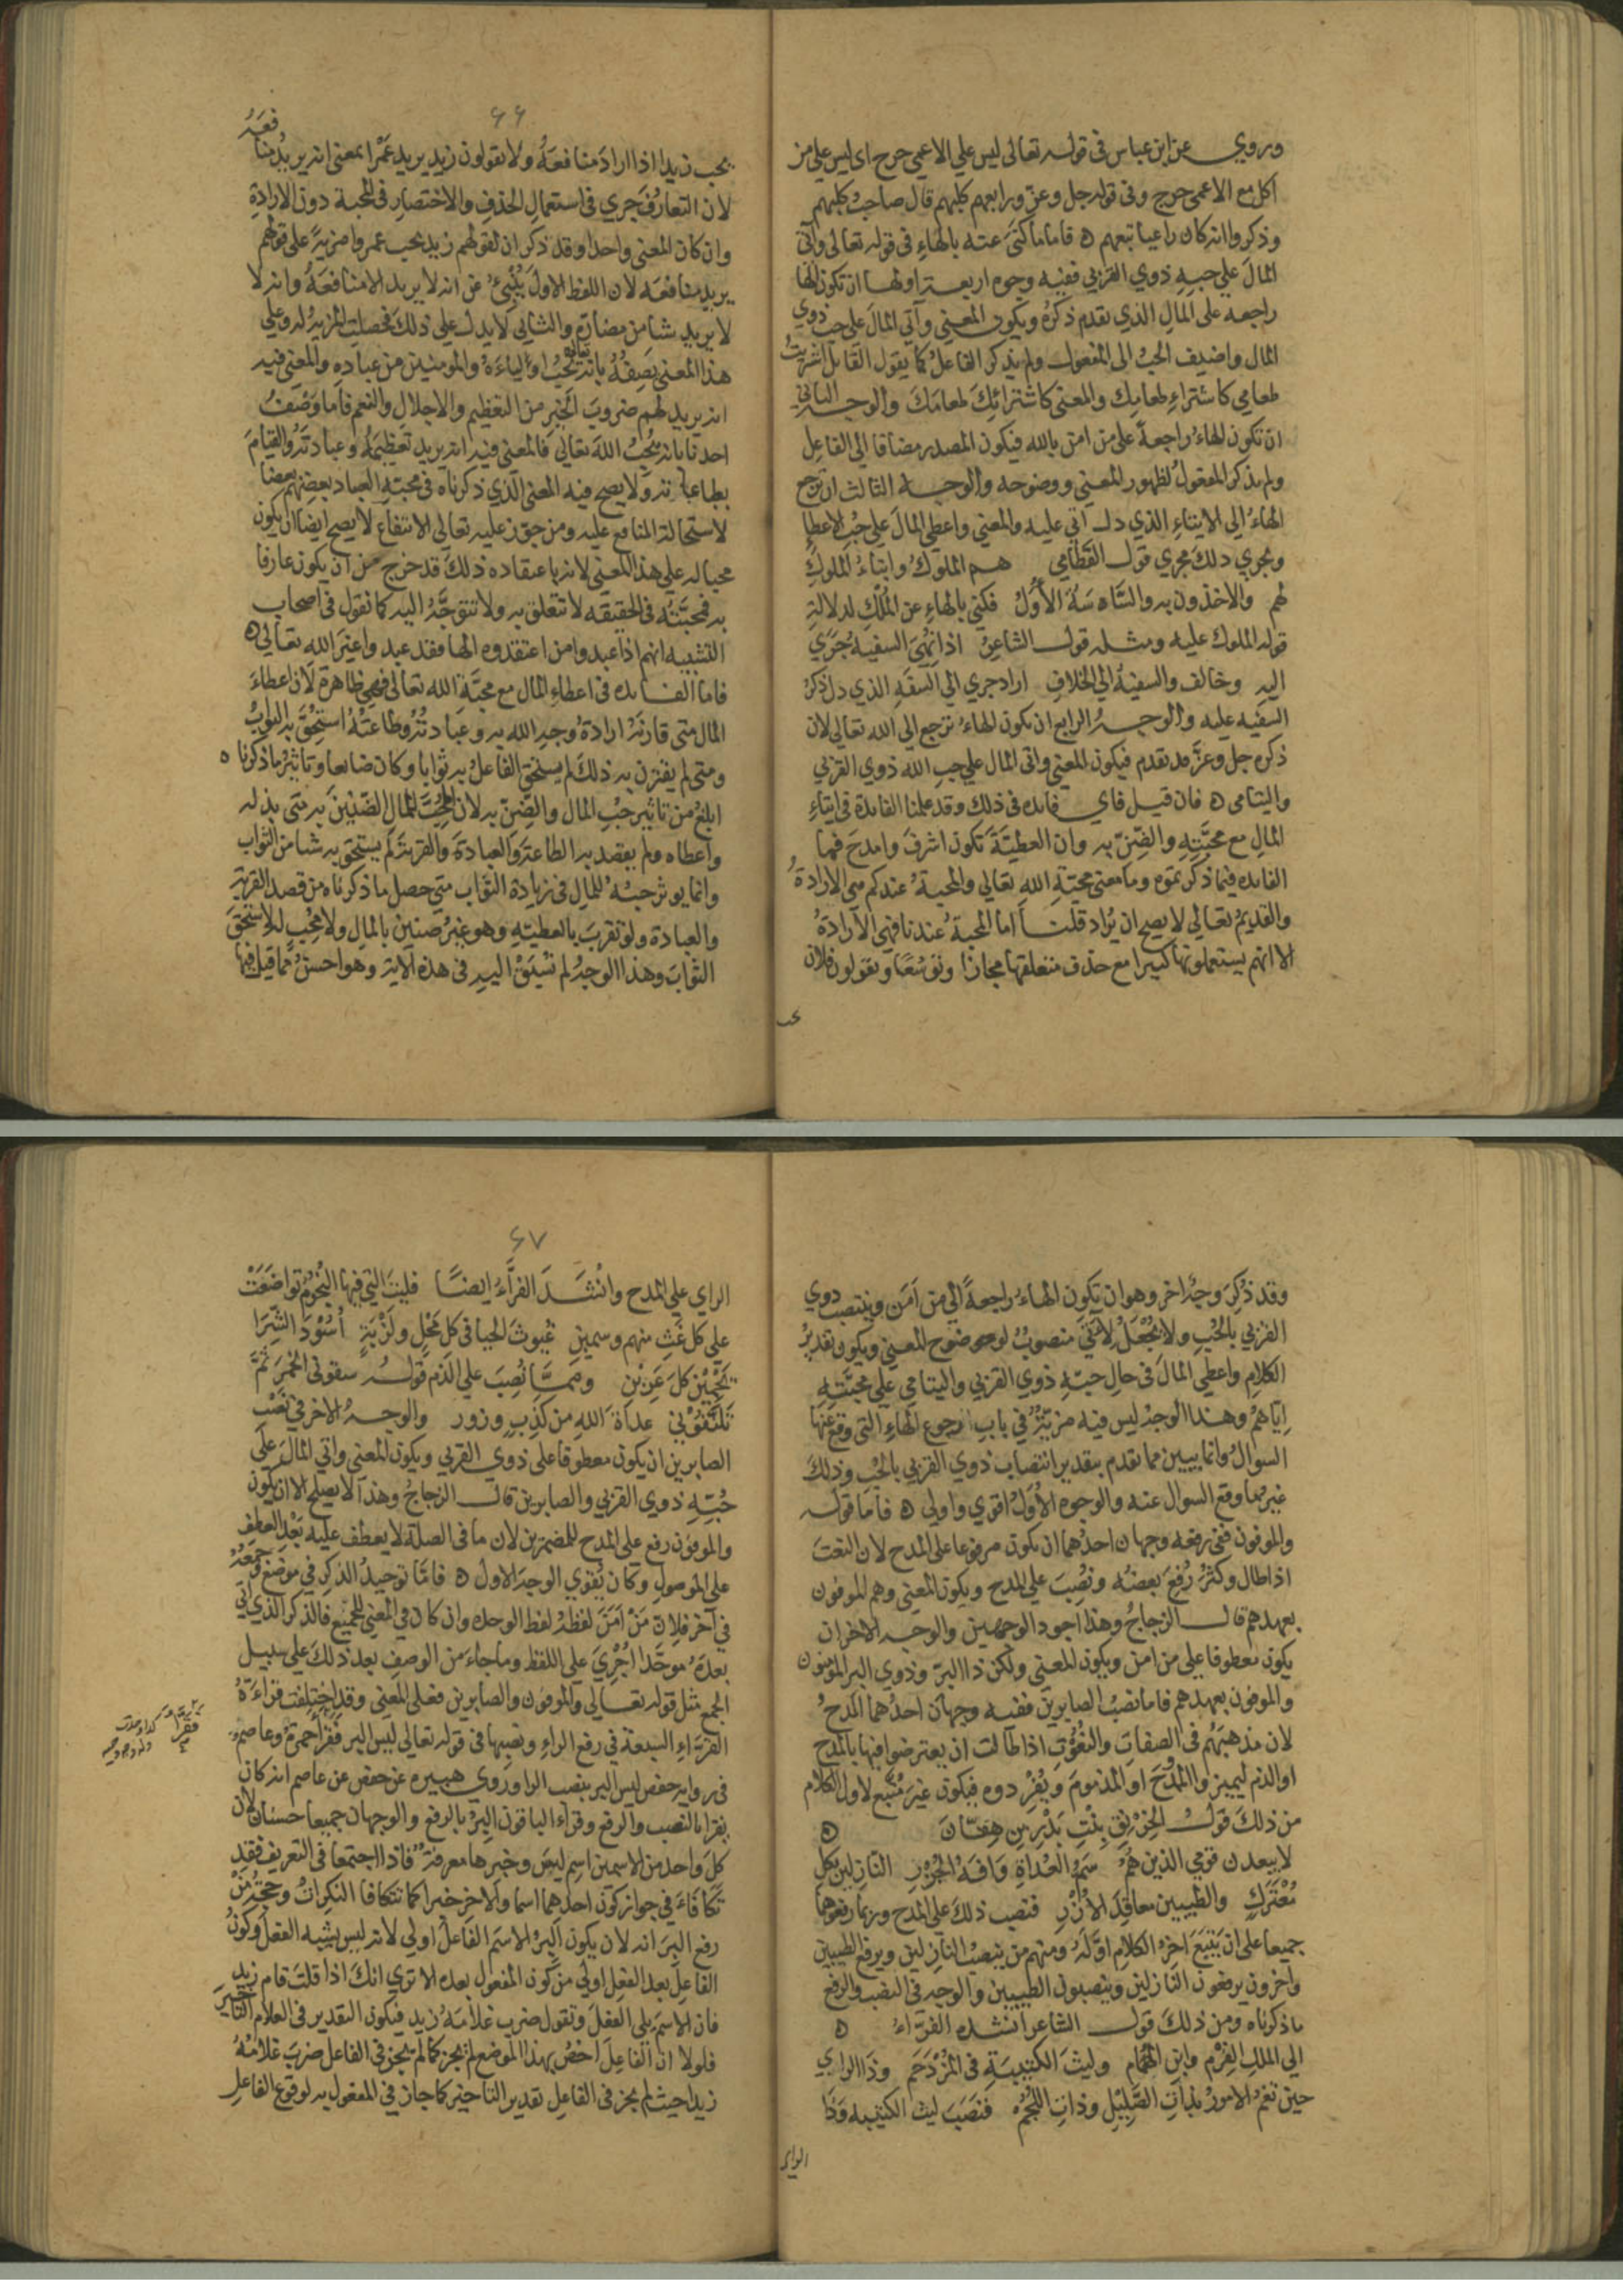 وروي عن ابن عباس في قوله تعالى ليس علي الاعمى حرج اى ليس على من
اكل مع الاعمى حرج وفى قوله جل وعز ورابعهم كلبهم قال صاحب كلبهم
وذكروا انه كان راعيا تبعهم ه فاما ما كنى عنه بالهاء في قوله تعالى وآتى
المال علي حبه ذوي القربي ففيه وجوه اربعة اولها ان تكون الهاء
راجعه على المال الذي تقدم ذكره ويكون المعني وآتي المال على حب ذوي
المال واضيف الحب الى المفعول ولم يذكر الفاعل كما يقول القائل اشتريت
طعامي كاشتراء طعامك والمعنى كاشترائك طعامك والوجه الثاني
ان تكون الهاء راجعة على من امن بالله فيكون المصدر مضافا الي الفاعل
ولم يذكر المفعول لظهور المعني ووضوحه والوجه الثالث ان ترجع
الهاء الي الايتاء الذي دل اتي عليه والمعني واعطى المال علي حب الاعطا
ويجري ذلك مجري قول القطامي هم الملوك وابناء الملوك
لهم والاخذون به والساسة الأول فكني بالهاء عن الملك لدلالة
قوله الملوك عليه ومثله قول الشاعر اذا نهي السفيه جري
اليه وخالف والسفيه الي الخلاف اراد جري الي السفه الذي دل ذكر
السفيه عليه والوجه الرابع ان تكون الهاء ترجع الي الله تعالى لان
ذكره جل وعز قد تقدم فيكون المعني واتى المال علي حب الله ذوي القربي
واليتامى ه فان قيل فاي فايده فى ذلك وقد علمنا الفايدة في ايتاء
المال مع محبته والضن به وان العطية تكون اشرف وامدح فما
الفايده فيما ذكرتموه وما معنى محبة الله تعالي والمحبة عندكم هي الارادة
والقديم تعالي لا يصح ان يراد قلنا اما المحبة عندنا فهي الارادة
الا انهم يستعملونها كثيرا مع حذف متعلقها مجازا وتوسعا ويقولون فلان
يحب
٦٦
يحب زيدا اذا اراد منافعه ولا يقولون زيد يريد عمرا بمعنى انه يريد منافعه
لان التعارف جري في استعمال الحذف والاختصار في المحبة دون الارادة
وان كان المعنى واحدا وقد ذكر ان لقولهم زيد يحب عمروا مزية على قولهم
يريد منافعه لان اللفظ الاول ينبئ عن انه لا يريد الا منافعه وانه لا
لا يريد شيا من مضاره والثاني لا يدل على ذلك فحصلت المزية له وعلي
هذا المعنى نصفه بانه تعالى يحب اولياءه والمومنين من عباده والمعنى فيه
انه يريد لهم ضروب الخير من التعظيم والاجلال والنعم فاما وصف
احدنا بانه يحب الله تعالي فالمعنى فيه انه يريد تعظيمه وعبادته والقيام
بطاعته ولا يصح فيه المعنى الذي ذكرناه في محبة العباد بعضهم بعضا
لاستحالة المنافع عليه ومن جوز عليه تعالي الانتفاع لا يصح ايضا ان يكون
محبا له علي هذا المعنى لانه باعتقاده ذلك قد خرج من ان يكون عارفا
به فمحبته في الحقيقه لا تتعلق به ولا تتوجه اليه كما نقول في اصحاب
التشبيه انهم اذا عبدوا من اعتقدوه الها فقد عبدوا غير الله تعالي ه
فاما الفايده في اعطاء المال مع محبة الله تعالى فهي ظاهرة لان اعطاء
المال متى قارنه ارادة وجه الله به وعبادته وطاعته استحق به الثواب
ومتى لم يقترن به ذلك لم يستحق الفاعل به ثوابا وكان ضايعا وتاثير ما ذكرنا ه
ابلغ من تاثير حب المال والضن به لان المحب للمال الضنين به متى بذله
واعطاه ولم يقصد به الطاعة والعبادة والقربة لم يستحق به شيا من الثواب
وانما يوثر حبه للمال في زيادة الثواب متى حصل ما ذكرناه من قصد القربة
والعبادة ولو تقرب بالعطية وهو غير ضنين بالمال ولا محب له لاستحق
الثواب وهذا الوجه لم نسبق اليه في هذه الاية وهو احسن مما قيل فيها
وقد ذكر وجه اخر وهو ان تكون الهاء راجعة الي من آمن وينتصب ذوي
القربي بالحب ولا يجعل لآتى منصوب لوضوح المعني ويكون تقدير
الكلام واعطي المال في حال حبه ذوي القربي واليتامي علي محبته
اياهم وهذا الوجه ليس فيه مزية في باب رجوع الهاء التي وقع عنها
السوال وانما يبين مما تقدم بتقدير انتصاب ذوي القربي بالحب وذلك
غير ما وقع السوال عنه والوجوه الأول اقوي واولي ه فاما قوله
والموفون ففي رفعه وجهان احدهما ان يكون مرفوعا على المدح لان النعت
اذا طال وكثر رفع بعضه ونصب علي المدح ويكون المعني وهم الموفون
بعهدهم قال الزجاج وهذا اجود الوجهين والوجه الاخر ان
يكون معطوفا علي من امن ويكون المعني ولكن ذا البر وذوي البر المؤمنون
والموفون بعهدهم فاما نصب الصابرين ففيه وجهان احدهما المدح
لان مذهبهم في الصفات والنعوت اذا طالت ان يعترضوا فيها بالمدح
او الذم ليميزوا الممدوح او المذموم ويفردوه فيكون غير متبع لاول الكلام
من ذلك قول الخرنق بنت بدر بن هفان ه
لا يبعدن قومي الذين هم سم العداة وآفة الجزر النازلين بكل
معترك والطيبين معاقد الأزر فنصب ذلك على المدح وربما رفعوهما
جميعا على ان يتبع آخر الكلام اوله ومنهم من ينصب النازلين ويرفع الطيبين
واخرون يرفعون النازلين وينصبون الطيبين والوجه في النصب والرفع
ما ذكرناه ومن ذلك قول الشاعر انشده الفراء ه
الي الملك القرم وابن الهمام وليث الكتيبة في المزدحم وذا الراي
حين تغم الامور بذات الصليل وذات اللجم فنصب ليث الكتيبه وذا
الراي
٦٧
الراي علي المدح وانشد الفراء ايضا فليت التي فيها النجوم تواضعت
علي كل غث منهم وسمين غيوث الحيا في كل محل ولزبة أسود الشرا
يحمين كل عرين ومما نصب علي الذم قوله سقوني الخمر ثم
تكنفوني عداة الله من كذب وزور والوجه الاخر في نصب
الصابرين ان يكون معطوفا على ذوي القربي ويكون المعني واتي المال على
حبه ذوي القربي والصابرين قال الزجاج وهذا لا يصلح الا ان يكون
والموفون رفع علي المدح للمضمرين لان ما في الصلة لا يعطف عليه بعد العطف
علي الموصول وكان يقوي الوجه الاول ه فاما توحيد الذكر في موضع وجمعه
في آخر فلان من آمن لفظه لفظ الوحده وان كان في المعني للجميع فالذكر الذي اتي
بعده موحدا اجري علي اللفظ وما جاء من الوصف بعد ذلك علي سبيل
الجمع مثل قوله تعالي والموفون والصابرين فعلي المعني وقد اختلفت قراءة
القراء السبعة في رفع الراء ونصبها في قوله تعالى ليس البر فقرأ حمزة وعاصم
في رواية حفص ليس البر بنصب الرا وروي هبيره عن حفص عن عاصم انه كان
يقرا بالنصب والرفع وقراء الباقون البر بالرفع والوجهان جميعا حسنان لان
كل واحد من الاسمين اسم ليس وخبرها معرفة فاذا اجتمعا في التعريف فقد
تكافاء في جواز كون احدهما اسما والاخر خبرا كما تتكافا النكرات وحجة من
رفع البر انه لان يكون البر الاسم الفاعل اولي لانه ليس يشبه الفعل وكون
الفاعل بعد الفعل اولي من كون المفعول بعده الا تري انك اذا قلت قام زيد
فان الاسم يلي الفعل وتقول ضرب غلامه زيد فيكون التقدير في الغلام التاخير
فلولا ان الفاعل اخص بهذا الموضع لم يجز كما لم يجز في الفاعل ضرب غلامه
زيدا حيث لم يجز في الفاعل تقدير التاخير كما جاز في المفعول به لوقوع الفاعل